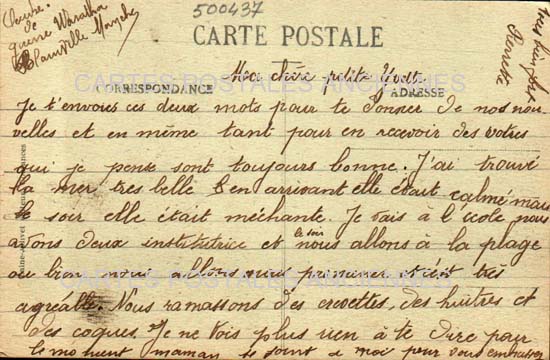 500437
CARTE POSTALE
Blainville Manche
Ma chère petite
CORRESPONDANCE
ADRESSE
CARTES POSTALES ANCIENNES
Je t'envoies ces deux mots pour te donner de nos nou-
velles et en même tant pour en recevoir des votres
qui je pense sont toujours bonne. J'ai trouvé
la mer tres belle en arrivant elle était calme mais
le soir elle était méchante. Je vais à l'école nous
avons deux institutrice et le soir nous allons à la plage
ou bien nous allons nous promener c'est très
CARTES POSTALES ANCIENNES
agréable. Nous ramassons des crevettes, des huitres et
des coques. Je ne vois plus rien à te dire pour
le moment maman se joint à moi pour vous embrasser